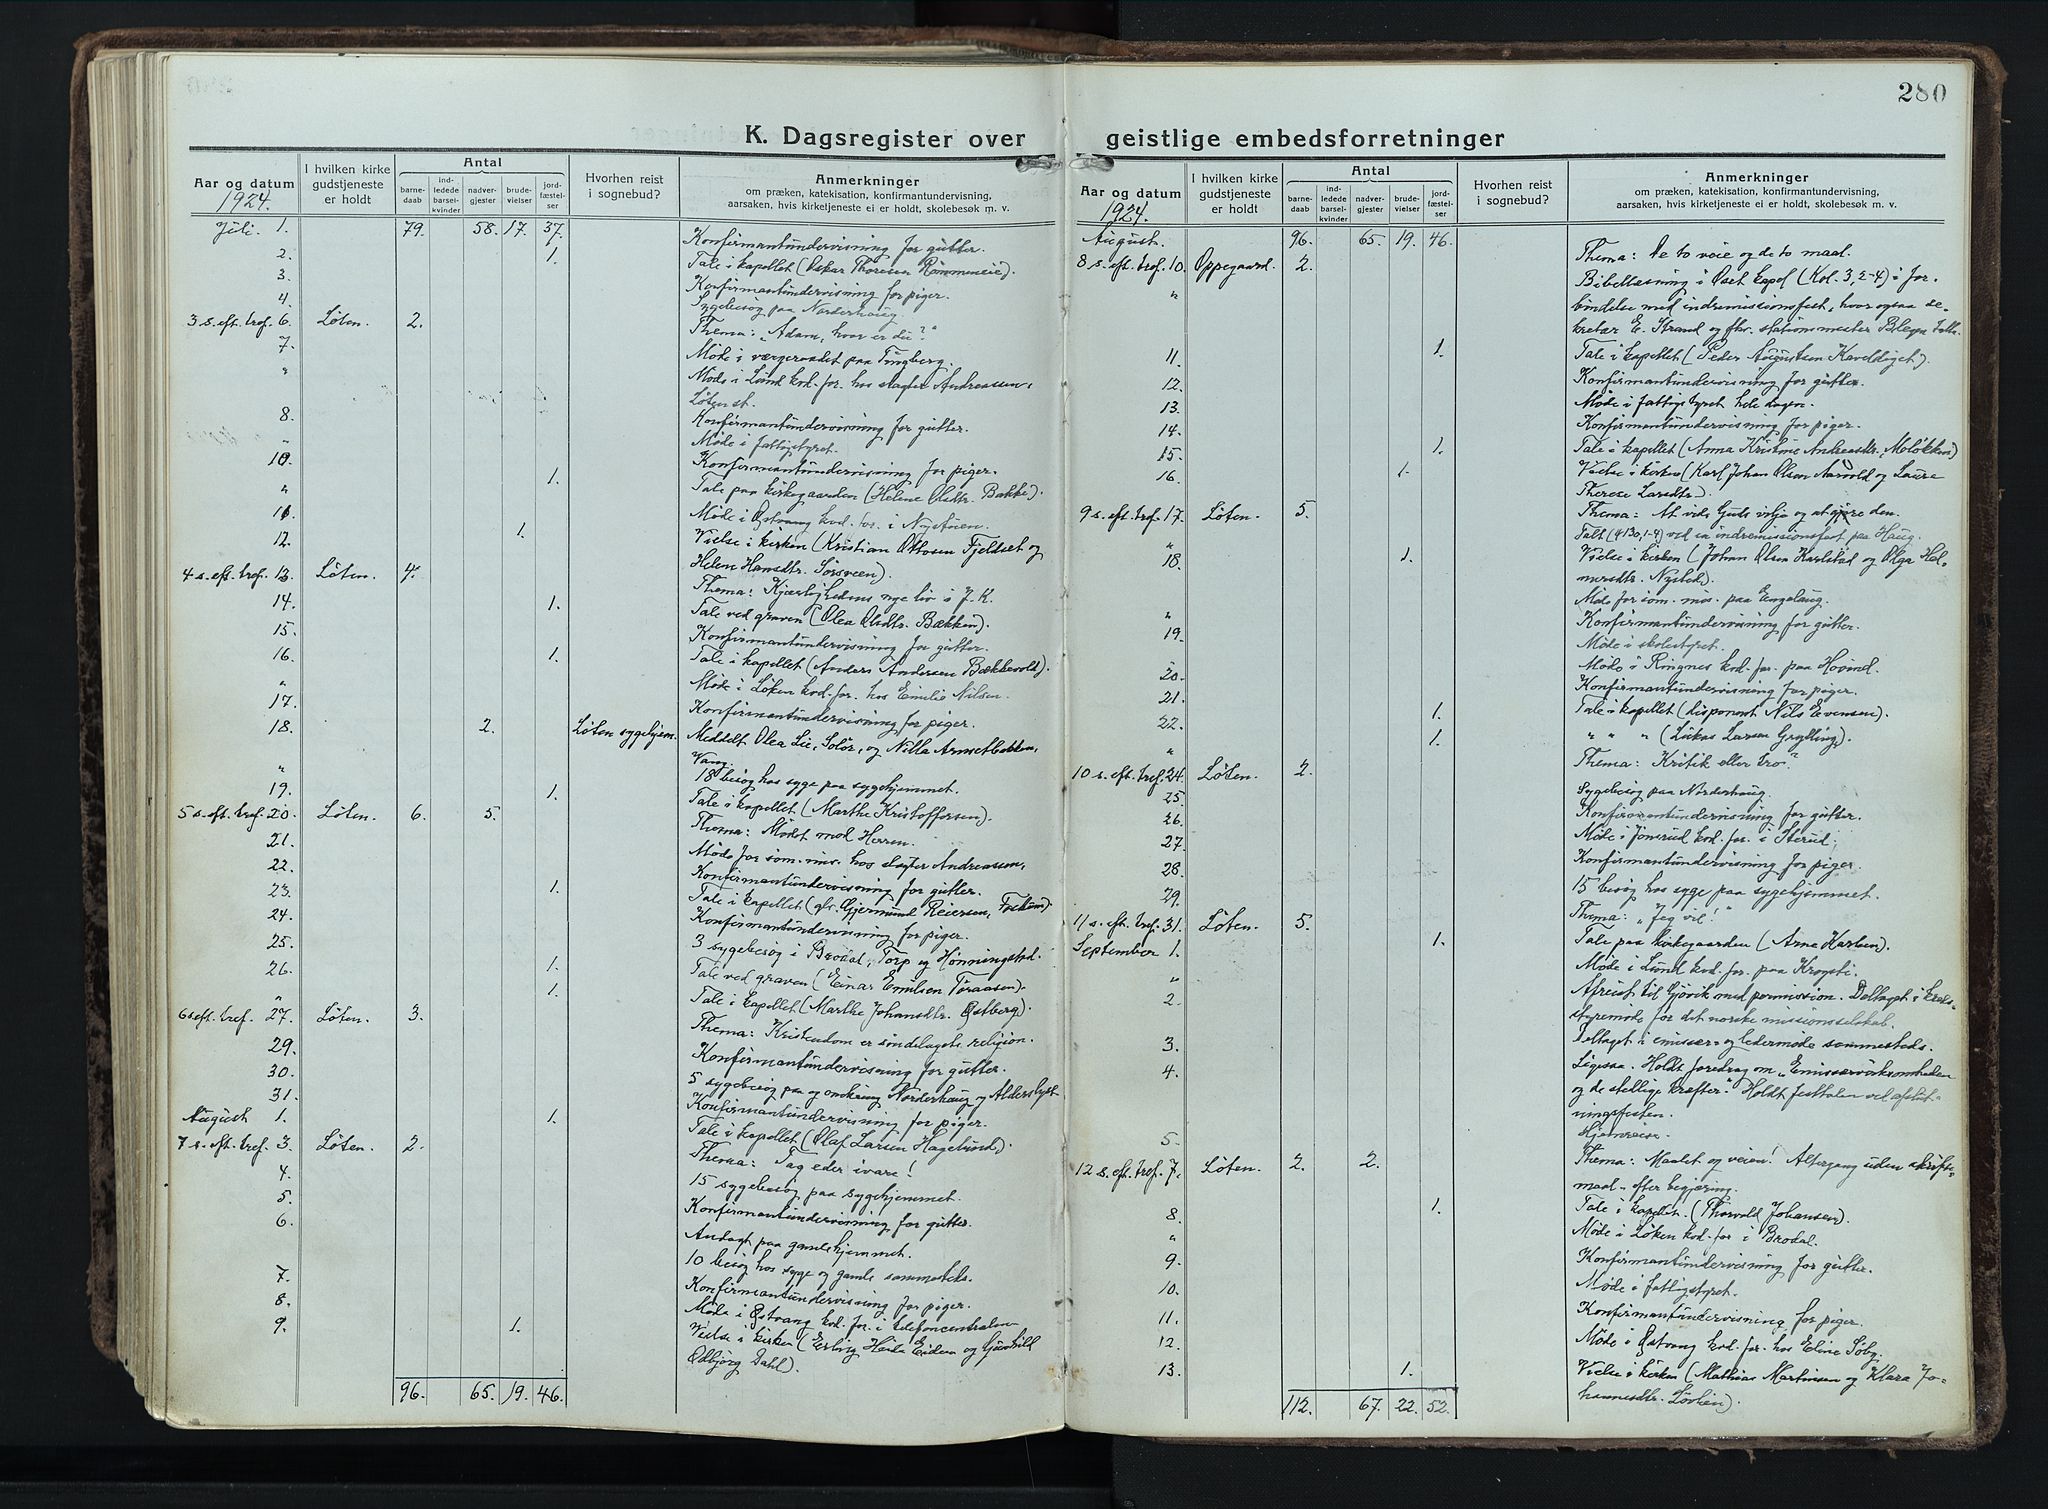 280
K. Dagsregister over geistlige embedsforretninger
Aar og datum
1924.
I hvilken kirke gudstjeneste er holdt
Antal
barnedaab
indledede barselkvinder
nadvergjester
brudevielser
jordfæstelser
Hvorhen reist i sognebud?
Anmerkninger
om præken, katekisation, konfirmantundervisning, aarsaken, hvis kirketjeneste ei er holdt, skolebesøk m. v.
Juli. 1. 79. 58. 17. 37. Konfirmantundervisning for gutter.
2. 1. Tale i kapellet (Oskar Thoresen Rømmeneie).
3. Konfirmantundervisning for piger.
4. Sygebesøg paa Norderhaug.
3 s. eft. tref. 6. Løten. 2. Thema: „Adam, hvor er du?"
7. Møde i værgeraadet paa Tingberg.
" Møde i Lund kvd. for. hos slagter Andreassen,
Løten st.
8. Konfirmantundervisning for gutter.
" Møde i fattigstyret.
10. Konfirmantundervisning for piger.
" 1. Tale paa kirkegaarden (Helene Olsdtr. Bakke).
11. Møde i Østvang kvd. for. i Nystuen.
12. 1. Vielse i kirken (Kristian Ottosen Fjeldset og
Helene Hansdtr. Sørsveen).
4 s. eft. tref. 13. Løten. 4. Thema: Kjærlighedens nye lov i J. K.
14. 1. Tale ved graven (Olea Olsdtr. Bækken).
15. Konfirmantundervisning for gutter.
16. 1. Tale i kapellet (Anders Andersen Bækkevold).
" Møde i Løken kvd. for. hos Emilie Nilsen.
17. Konfirmantundervisning for piger.
18. 2. Løten sygehjem. Meddelt Olea Lie, Solør, og Nilla Armetbakken,
Vang.
" 18 besøg hos syge paa sygehjemmet.
19. 1. Tale i kapellet (Marthe Kristoffersen).
5 s. eft. tref. 20. Løten. 6. 5. Thema: Mødet med Herren.
21. Møde for som. mis. hos slagter Andreassen,
22. Konfirmantundervisning for gutter.
23. 1. Tale i kapellet (gbr. Gjermund Reiersen,
24. Konfirmantundervisning for piger.
25. 3 sygebesøg i Brodal, Torp og Hønningstad.
26. 1. Tale ved graven (Einar Emilsen Toraasen).
" 1. Tale i kapellet (Marthe Johansdtr. Østberg).
6 s. eft. tref. 27. Løten. 3. Thema: Kristendom er sindelagets religion.
29. Konfirmantundervisning for gutter.
30. 5 sygebesøg paa og omkring Norderhaug og Alderslyst.
31. Konfirmantundervisning for piger.
August 1. 1. Tale i kapellet (Olaf Larsen Hagelund).
7 s. eft. tref. 3. Løten. 2. Thema: Tag eder ivare!
4. 15 sygebesøg paa sygehjemmet.
5. Konfirmantundervisning for gutter.
6. Andagt paa gamlehjemmet.
10 besøg hos syge og gamle sammesteds.
7. Konfirmantundervisning for piger.
8. Møde i Østvang kvd. for. i telefoncentralen.
9. 1. Vielse i kirken (Erling Eiden og Gunhild
Odbjørg Dahl).
96. 65. 19. 46.
Aar og datum
1924.
I hvilken kirke gudstjeneste er holdt
Antal
barnedaab
indledede barselkvinder
nadvergjester
brudevielser
jordfæstelser
Hvorhen reist i sognebud?
Anmerkninger
om præken, katekisation, konfirmantundervisning, aarsaken, hvis kirketjeneste ei er holdt, skolebesøk m. v.
August. 96. 65. 19. 46.
8 s. eft. tref. 10. Oppegaard. 2. Thema: De to veie og de to maal.
" Bibellæsning i Oset kapel (Kol. 3, 2-4) i for-
bindelse med indremissionsfest, hvor ogsaa se-
kretær E. Strand og fhv. stationsmester talte.
11. 1. Tale i kapellet (Peder Augustsen Kavldiget).
12. Konfirmantundervisning for gutter.
13. Møde i fattigstyret hele dagen.
14. Konfirmantundervisning for piger.
15. 1. Tale i kapellet (Anna Kristine Andreasdtr. Meløkken)
16. 1. Vielse i kirken (Karl Johan Olsen Aasvold og Laura
Therese Larsdtr.).
9 s. eft. tref. 17. Løten. 5. Thema: At vide Guds vilje og at gjøre den.
" Talt ved en indremissionsfest paa Haug.
18. 1. Vielse i kirken (Johan Olsen Karlstad og Olga Hel-
mersdtr. Nysted).
" Møde for som. mis. paa Engelaug.
19. Konfirmantundervisning for gutter.
Møde i skolestyret.
20. Møde i Ringnes kvd. for. paa Hovind.
21. Konfirmantundervisning for piger.
22. 1. Tale i kapellet (disponent Nils Evensen).
" 1. " " " (Lukas Larsen Grylling).
10 s. eft. tref. 24. Løten. 2. Thema: Kritik eller tro?
25. Sygebesøg paa Norderhaug.
26. Konfirmantundervisning for gutter.
27. Møde i Jønsrud kvd. for. i Sterud.
28. Konfirmantundervisning for piger.
29. 15 besøg hos syge paa sygehjemmet.
11 s. eft. tref. 31. Løten. 5. Thema: „Jeg vil!"
September 1. 1. Tale paa kirkegaarden (Arne Karlsen).
" Møde i Lund kvd. for. paa Krogsti.
2. Afreist til Gjøvik med permission. Deltaget i kreds-
styremøde for det norske missionsselskab.
3. Deltaget i emissær- og ledermøde sammesteds.
4. Ligesaa. Holdt foredrag om „Emissærvirksomheden
og de stedlige kræfter." Holdt festtalen ved afslut-
ningsfesten.
5. Hjemreise.
12 s. eft. tref. 7. Løten. 2. 2. Thema: Maalet og veien! Altergang uden skrifte-
maal - efter begjæring.
8. 1. Tale i kapellet. (Thorvald Johansen).
" Møde i Løken kvd. for i Brodal.
9. Konfirmantundervisning for gutter.
10. Møde i fattigstyret.
11. Konfirmantundervisning for piger.
12. Møde i Østvang kvd. for. hos Eline Søby.
13. 1. Vielse i kirken (Mathias Martinsen og Klara Jo-
hannesdtr. Løvlien).
112. 67. 22. 52.